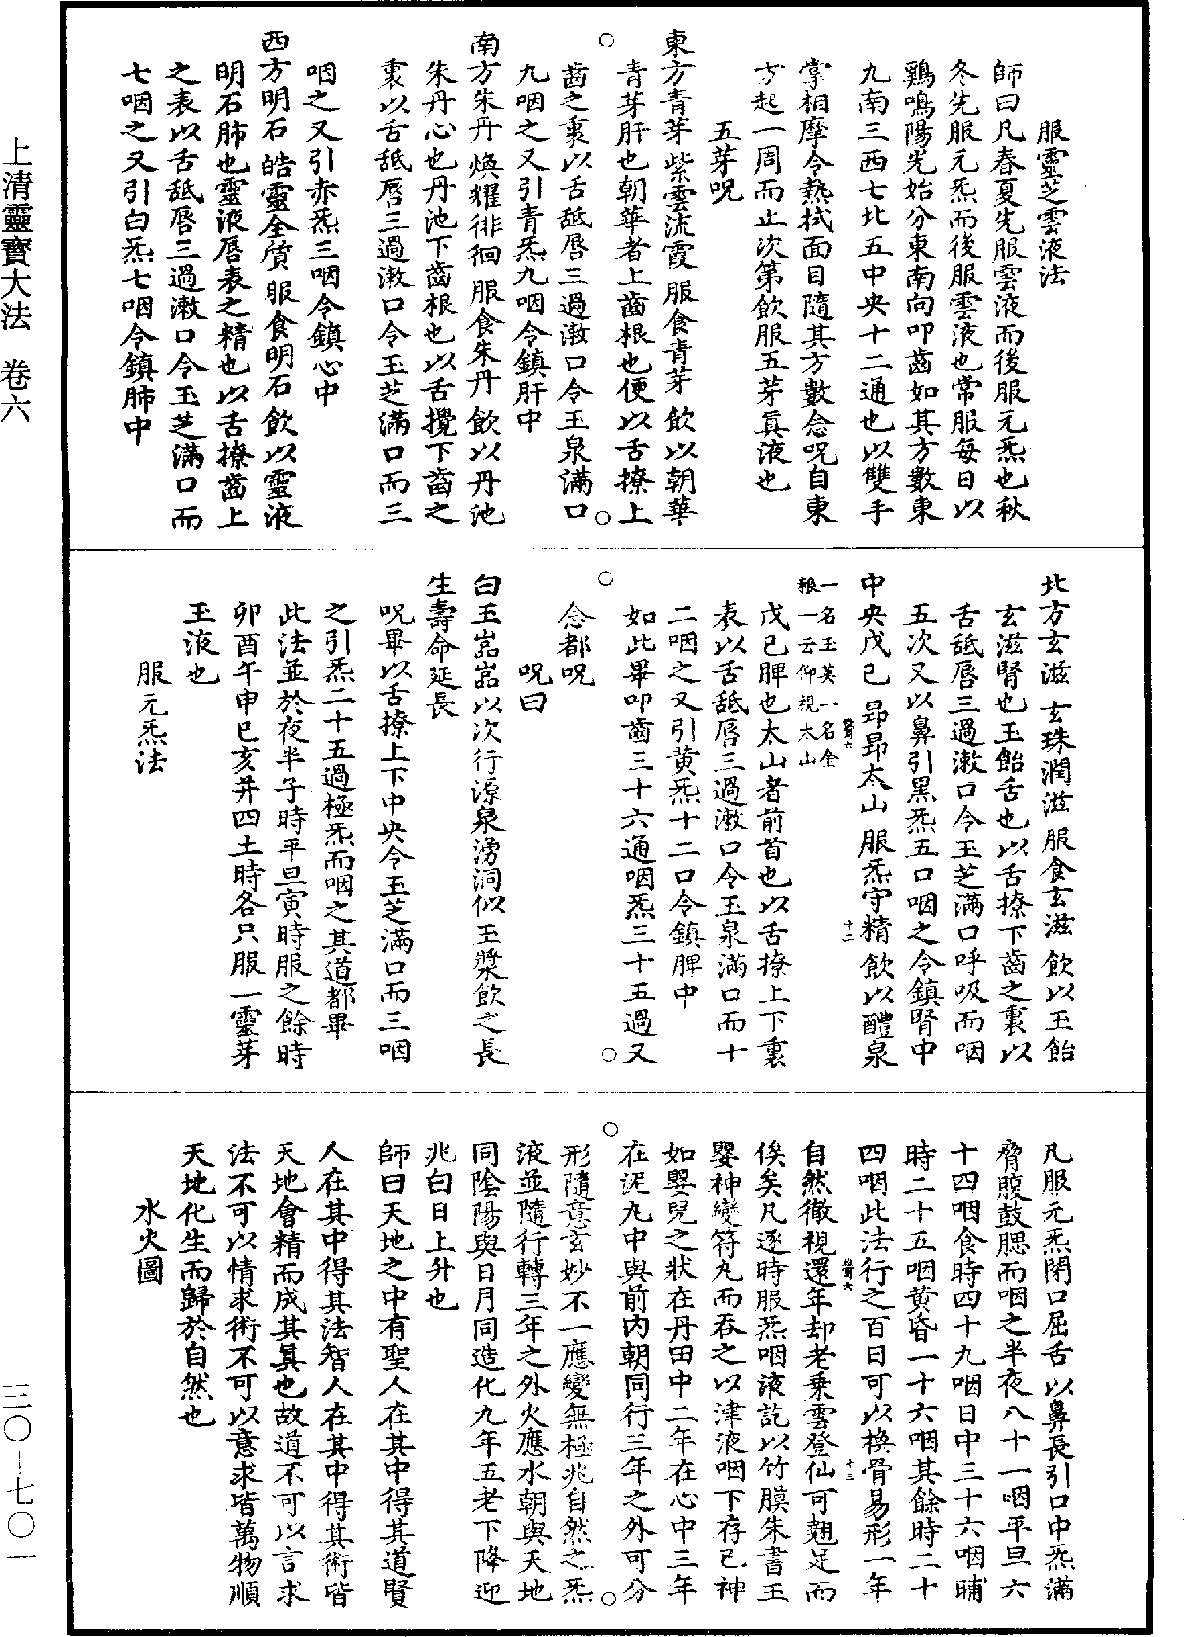 上清靈寶大法　卷六
三〇－七〇一
服靈芝雲液法
師曰凡春夏先服雲液而後服元炁也秋
冬先服元炁而後服雲液也常服每日以
鷄鳴陽光始分東南向叩齒如其方數東
九南三西七北五中央十二通也以雙手
掌相摩令熱拭面目隨其方數念呪自東
方起一周而止次第飲服五芽眞液也
五芽呪
東方青芽紫雲流霞服食青芽飲以朝華
青芽肝也朝華者上齒根也便以舌撩上
齒之裏以舌舐唇三過漱口令玉泉滿口
九咽之又引青炁九咽令鎮肝中
南方朱丹煥耀徘徊服食朱丹飲以丹池
朱丹心也丹池下齒根也以舌攪下齒之
裏以舌舐唇三過漱口令玉芝滿口而三
咽之又引赤炁三咽令鎮心中
西方明石皓靈全質服食明石飲以靈液
明石肺也靈液唇表之精也以舌撩齒上
之表以舌舐唇三過漱口令玉芝滿口而
七咽之又引白炁七咽令鎮肺中
北方玄滋玄珠潤滋服食玄滋飲以玉飴
玄滋腎也玉飴舌也以舌撩下齒之裏以
舌舐唇三過漱口令玉芝滿口呼吸而咽
五次又以鼻引黑炁五口咽之令鎮腎中
中央戊己昂昂太山服炁守精飲以醴泉
一名玉英一名金
粮一云仰視太山
戊己脾也太山者前首也以舌撩上下裏
表以舌舐唇三過漱口令玉泉滿口而十
二咽之又引黄炁十二口令鎮脾中
如此畢叩齒三十六通咽炁三十五過又
念都呪
呪曰
白玉嵓嵓以次行源泉湧洞似玉漿飲之長
生壽命延長
呪畢以舌撩上下中央令玉芝滿口而三咽
之引炁二十五過極炁而咽之其道都畢
此法並於夜半子時平旦寅時服之餘時
卯酉午申巳亥并四土時各只服一靈芽
玉液也
服元炁法
凡服元炁閉口屈舌以鼻長引口中炁滿
脅腹鼓腮而咽之半夜八十一咽平旦六
十四咽食時四十九咽日中三十六咽晡
時二十五咽黄昏一十六咽其餘時二十
四咽此法行之百日可以換骨易形一年
自然徹視還年却老乗雲登仙可翹足而
俟矣凡逐時服炁咽液訖以竹膜朱書玉
嬰神變符九而吞之以津液咽下存己神
如嬰兒之狀在丹田中二年在心中三年
在泥丸中與前内朝同行三年之外可分
形隨意玄妙不一應變無極兆自然之炁
液並隨行轉三年之外火應水朝與天地
同陰陽與日月同造化九年五老下降迎
兆白日上升也
師曰天地之中有聖人在其中得其道賢
人在其中得其法智人在其中得其術皆
天地會精而成其眞也故道不可以言求
法不可以情求術不可以意求皆萬物順
天地化生而歸於自然也
水火圖